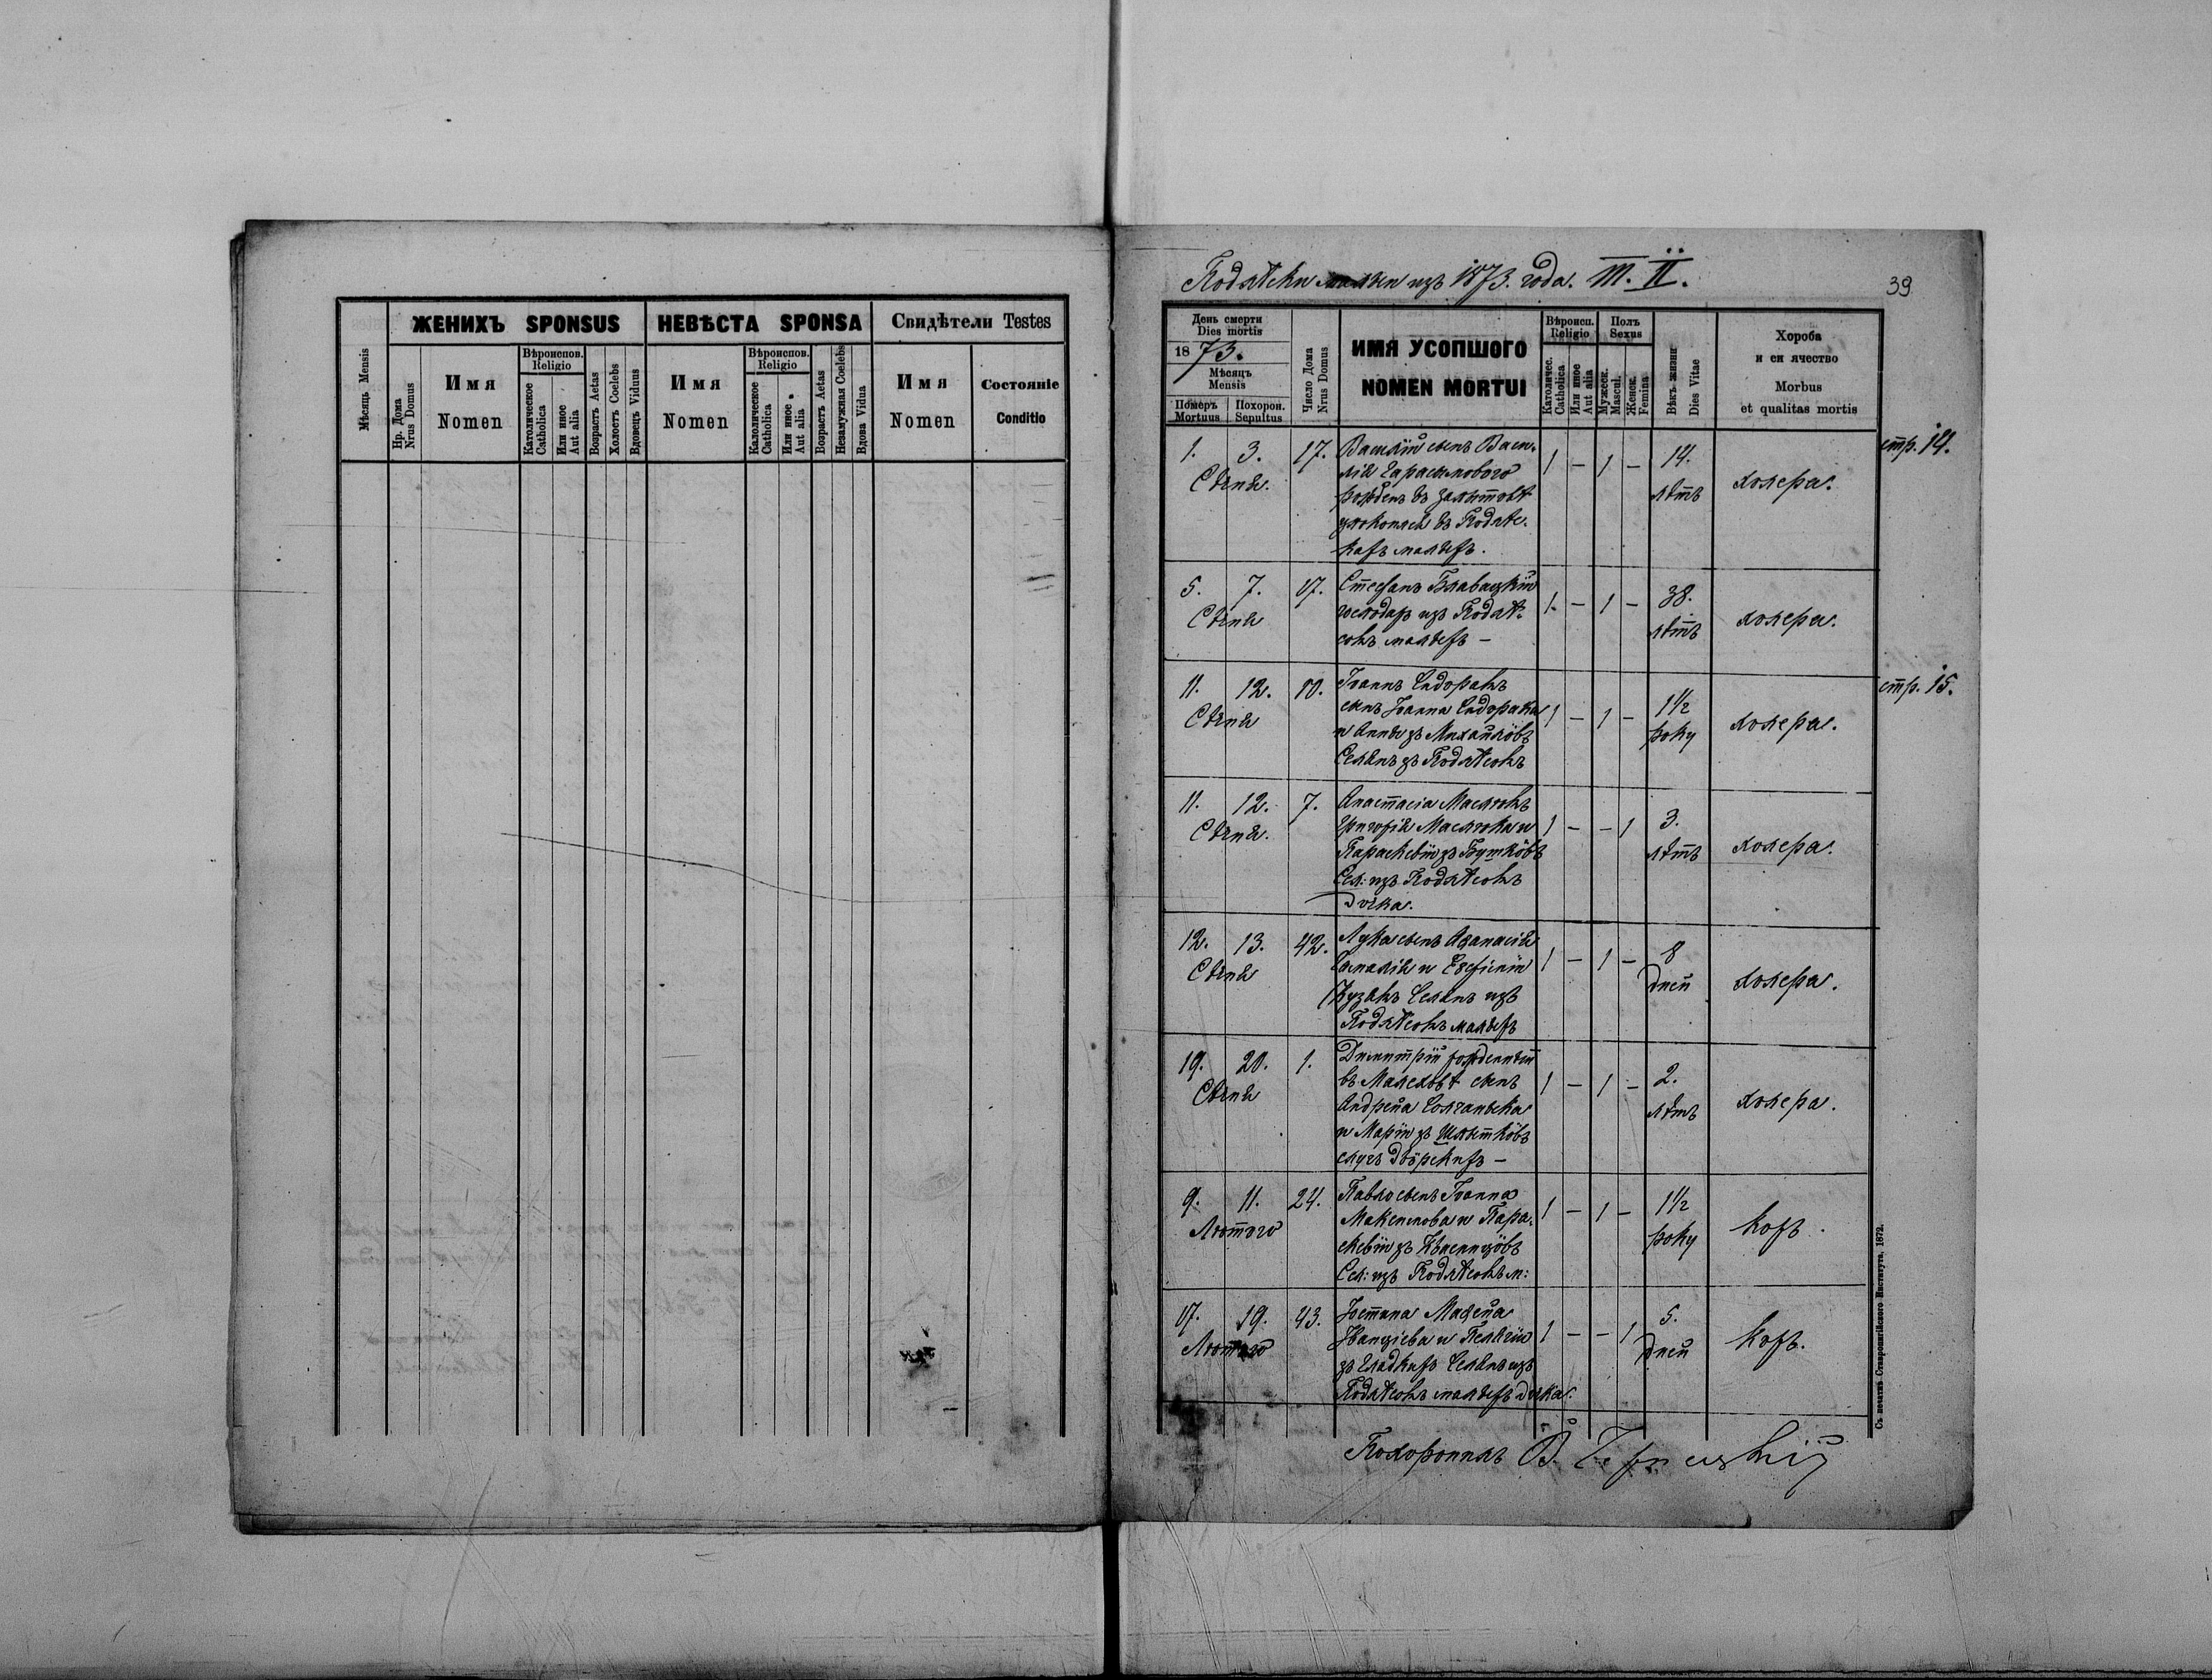 ЖЕНИХЪ SPONSUS
НЕВѢСТА SPONSA
Свидѣтели Testes
Мѣсяць Mensis
Нр. Дома
Nrus Domus
Имя
Nomen
Вѣроиспов.
Religio
Католическое
Catholica
Или иное
Aut alia
Возрастъ Aetas
Холостъ Coelebs
Вдовецъ Viduus
Имя
Nomen
Вѣроиспов.
Religio
Калолическое
Catholica
Или иное
Aut alia
Возрастъ Aetas
Незамужная Coelebs
Вдова Vidua
Имя
Nomen
Состояніе
Conditio
Подлѣски малыи изъ 1873. года. Т. II.
39
День смерти
Dies mortis
1873.
Мѣсяцъ
Mensis
Померъ
Mortuus
Похорон.
Sepultus
Число Дома
Nrus Domus
ИМЯ УСОПШОГО
NOMEN MORTUI
Вѣроисп.
Religio
Католичес.
Catholica
Или иное
Aut alia
Полъ
Sexus
Мужеск.
Mascul.
Женск.
Femina
Вѣкъ жизни
Dies Vitae
Хороба
и еи ячество
Morbus
et qualitas mortis
1. 3. 17. Василій сынъ Васи-
Сѣчня.
лія Герасимового
рожденъ въ
въ Подлѣс-
кахъ малыхъ.
1 — 1 — 14.
лѣтъ
холера.
стр. 14.
5. 7. 17. Стефанъ Блавацкій
Сѣчня
господарь изъ Подлѣ-
сокъ малыхъ —
1. — 1 — 38.
лѣтъ
холера.
11. 12. 10. Іоаннъ Сидоракъ
Сѣчня
сынъ Іоанна Сидорака
и Анны зъ Михайлôвъ
Селянъ зъ Подлѣсокъ
1 — 1 — 1½
року
холера.
стр. 15.
11. 12. 7. Анастасіа
Сѣчня.
Григорія
Параскевіи зъ
Сел: изъ Подлѣсокъ
дочка.
1 — — 1 3.
лѣтъ
холера.
12. 13. 42. Лука сынъ Аѳанасія
Сѣчня
и Евфиміи
Селянъ изъ
Подлѣсокъ малыхъ
1 — 1 — 8
дней
холера.
19. 20. 1. Димитрій рожденный
Сѣчня
въ Малеховѣ сынъ
Андрея
и Маріи зъ
слугъ двôрскихъ —
1 — 1 — 2.
лѣтъ
холера.
9. 11. 24. Павло сынъ Іоанна
Лютого
Максимова и Пара-
скевіи зъ
Сел: изъ Подлѣсокъ м:
1 — 1 — 1½
року
Коръ.
17. 19. 43.
Лютого
и Пелагіи
зъ Гладкихъ Селянъ изъ
Подлѣсокъ малыхъ дочка.
1 — — 1 5.
дней
Коръ.
Похоронилъ В.
Съ печатнѣ Ставропигійского Института, 1872.